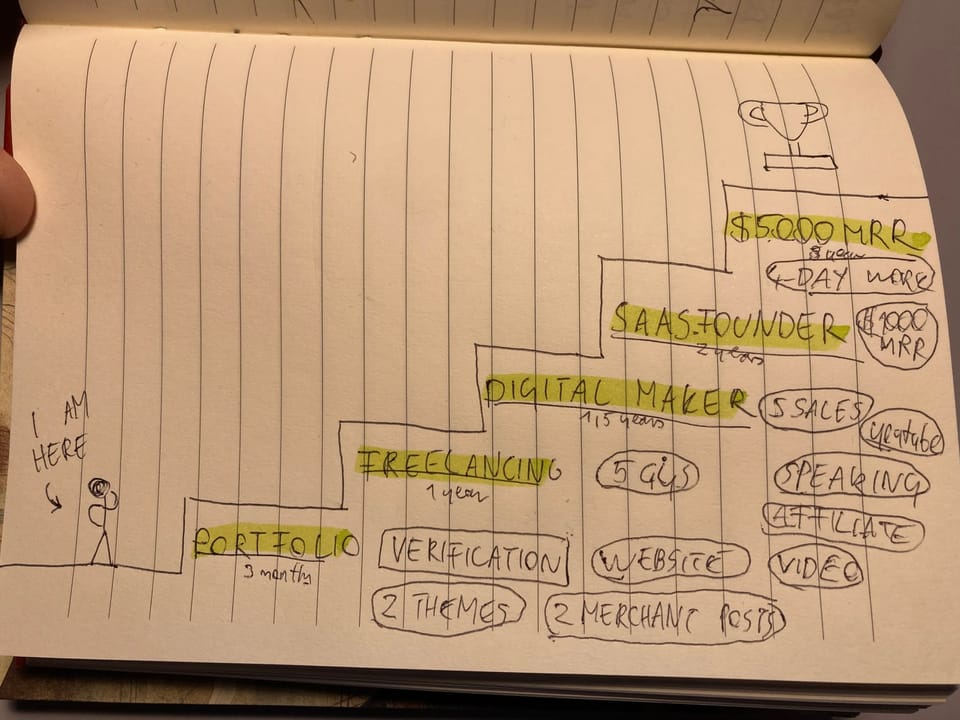 $5.000 MRR
3 years
4-DAY WORK
SAAS FOUNDER
2 years
$1000
MRR
DIGITAL MAKER
1,5 years
5 SALES
youtube
FREELANCING
1 year
5 GIGS
SPEAKING
AFFILIATE
I AM
HERE
PORTFOLIO
3 months
VERIFICATION
WEBSITE
VIDEO
2 THEMES
2 MERCHANT POSTS